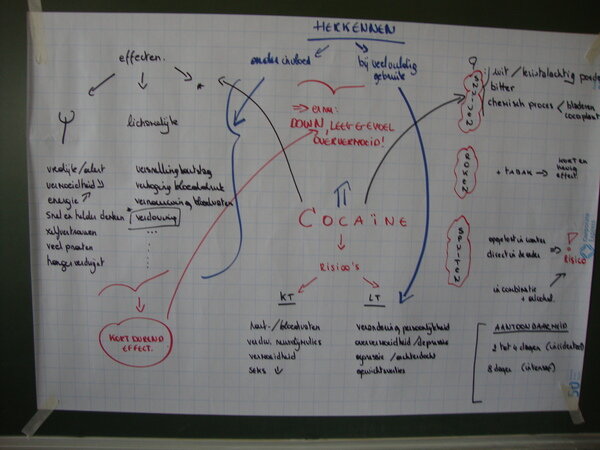 HERKENNEN
onder invloed
bij veelvuldig
gebruik
effecten.
*
Ψ
lichamelijke
vrolijk/alert
vermoeidheid ↘
energie ↗
snel en helder denken
zelfvertrouwen
veel praten
honger verdwijnt
versnelling hartslag
verhoging bloeddruk
vernauwing bloedvaten
* verdoving
KORTDUREND
EFFECT.
⇒ erna:
DOWN, LEEG GEVOEL
OVERVERMOEID!
COCAÏNE
RISICO'S
KT
hart-/bloedvaten
vermoeidheid
seks ↓
LT
verandering persoonlijkheid
oververmoeidheid/depressie
agressie/achterdocht
gewichtsverlies
SNUIVEN
wit/kristalachtig poeder
bitter
chemisch proces < bladeren
cocaplant
ROKEN
+ TABAK → KORT EN
hevig
effect.
SPUITEN
opgelost in water
direct in de ader
⇒ RISICO
!
in combinatie
+ alcohol.
AANTOONBAARHEID
2 tot 4 dagen (incidenteel)
8 dagen (intensief)